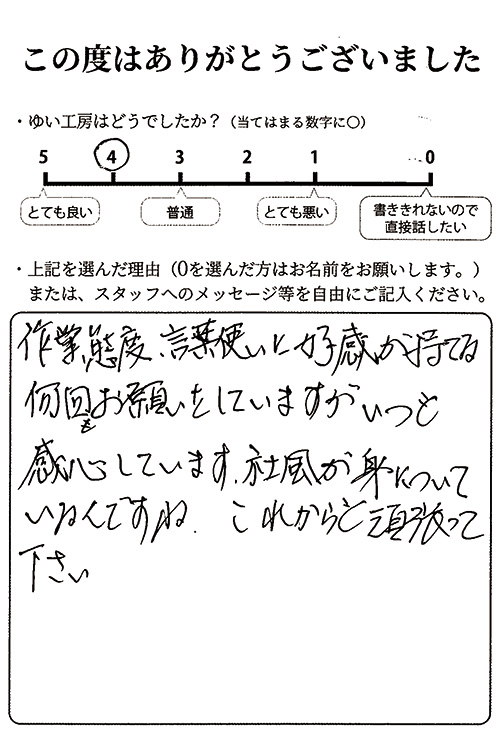 この度はありがとうございました
・ゆい工房はどうでしたか？（当てはまる数字に〇）
5 4 3 2 1 0
とても良い 普通 とても悪い 書ききれないので
直接話したい
・上記を選んだ理由（0を選んだ方はお名前をお願いします。）
または、スタッフへのメッセージ等を自由にご記入ください。
作業態度、言葉使いに好感が持てる
何回もお願いをしていますがいつも
感心しています。社風が身について
いるんですね。これからも頑張って
下さい